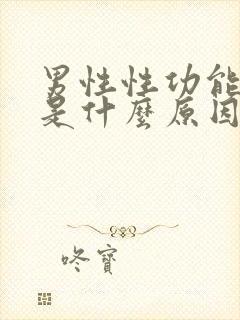 男性性功能
是什麼原因
咚寶